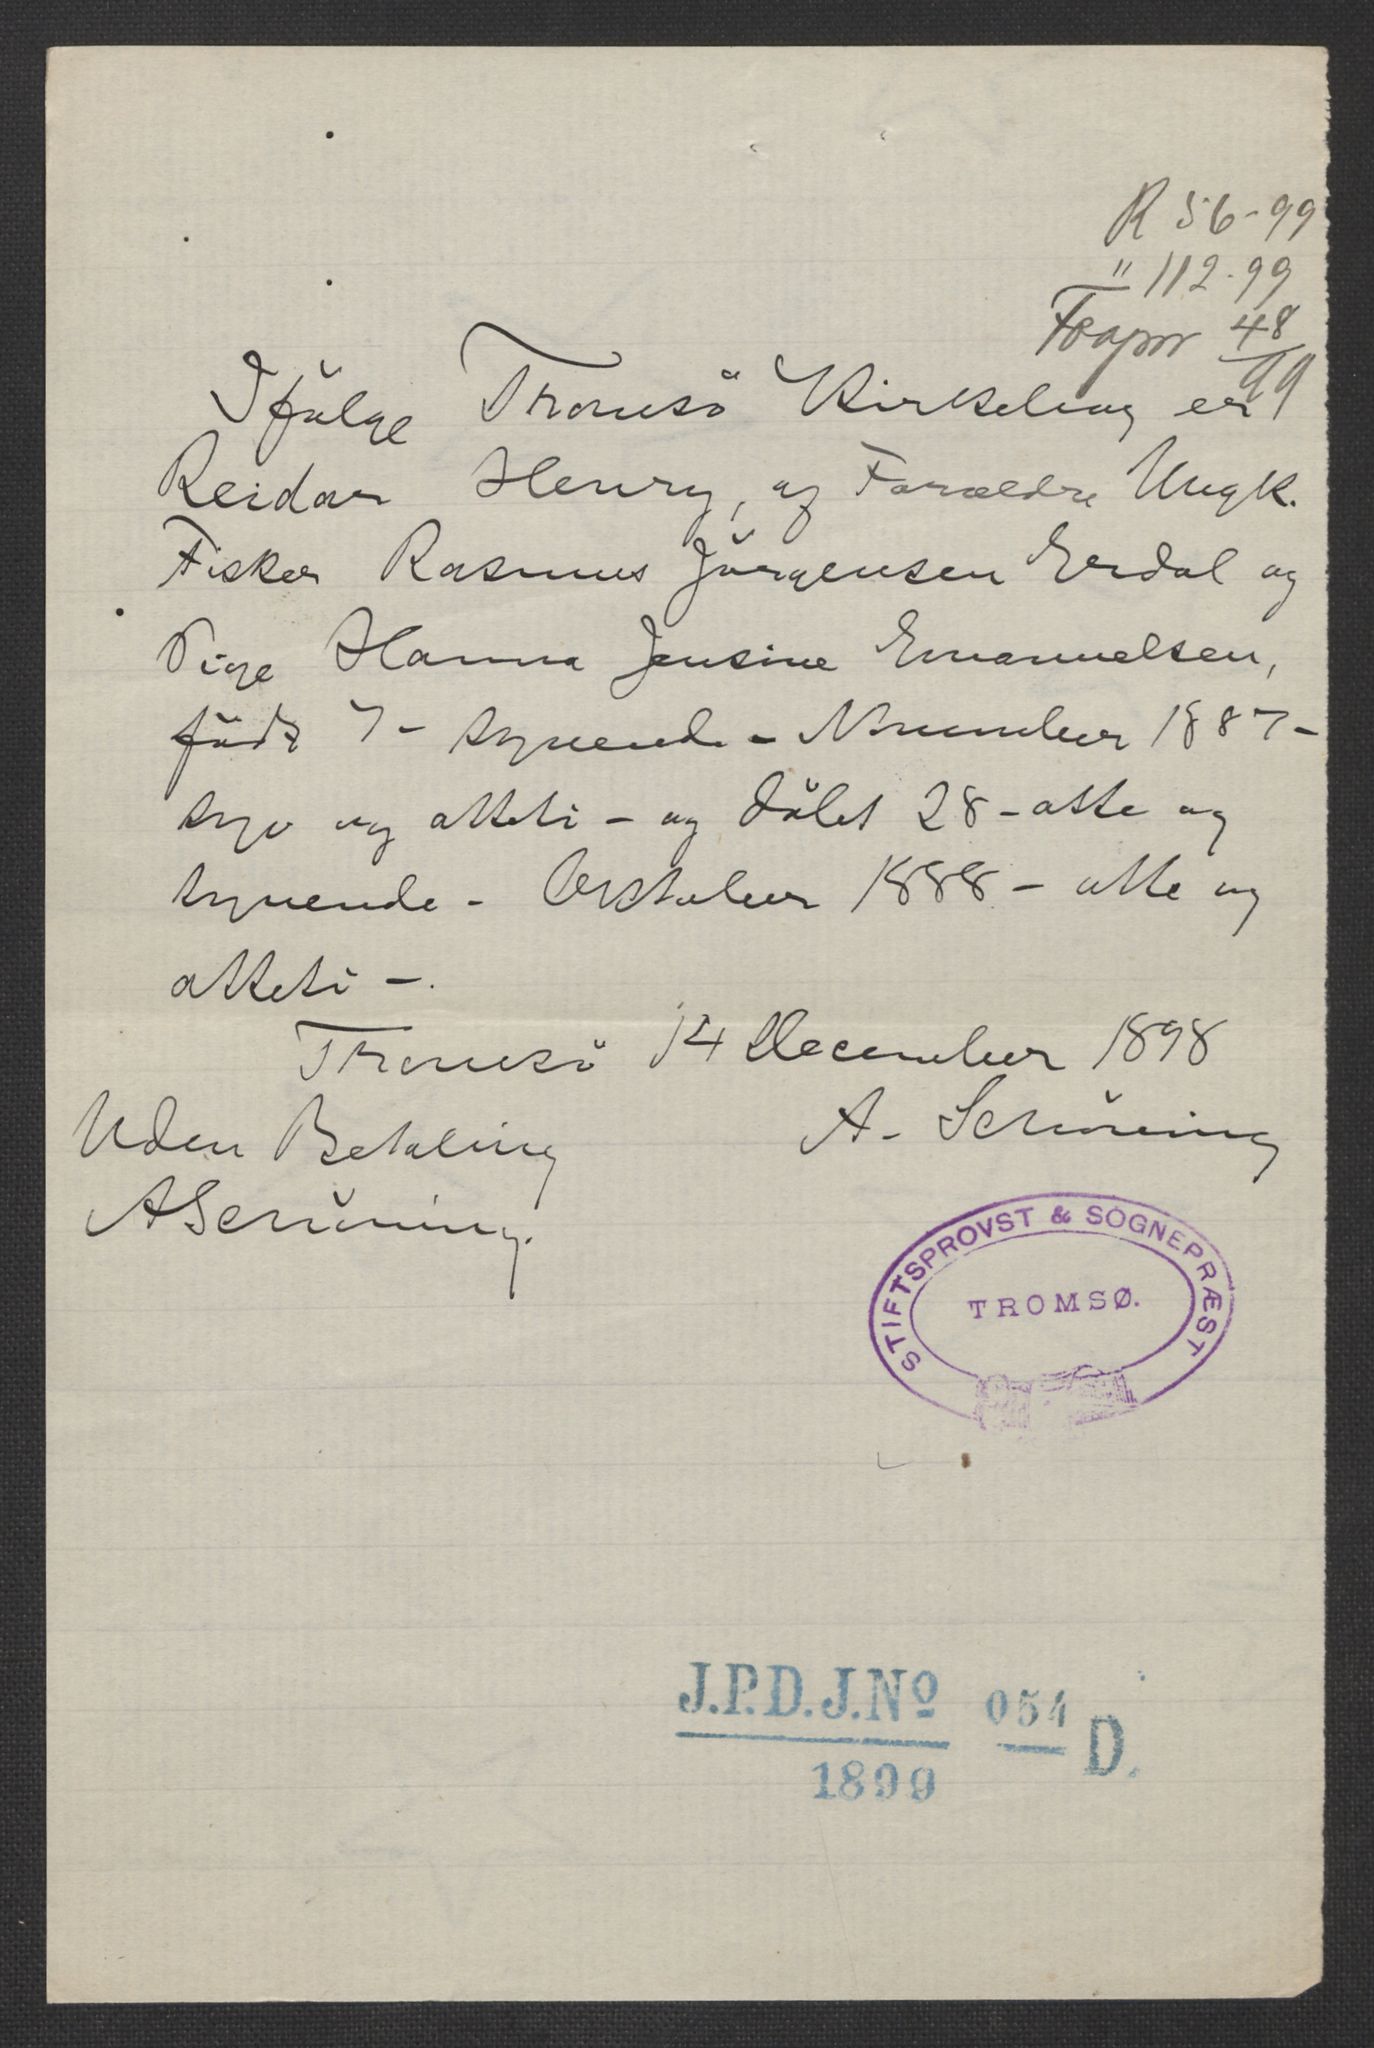 R 56-99
" 112-99
48
99
Ifölge Tromsö Kirkebog er
Reidar Henry, af Forældre Ungk.
Fisker Rasmus Jörgensen Erdal og
Pige Hanna Jensine Emanuelsen,
födt 7 - syvende - November 1887 -
syv og otteti - og döbt 28 - otte og
tyvende - Oktober 1888 - otte og
otteti -.
Tromsö 14 December 1898
A. Schöning
Uden Betaling
ASchöning.
STIFTSPROVST & SOGNEPRÆST
TROMSØ.
J.P.D.J.Nº 054 D.
1899